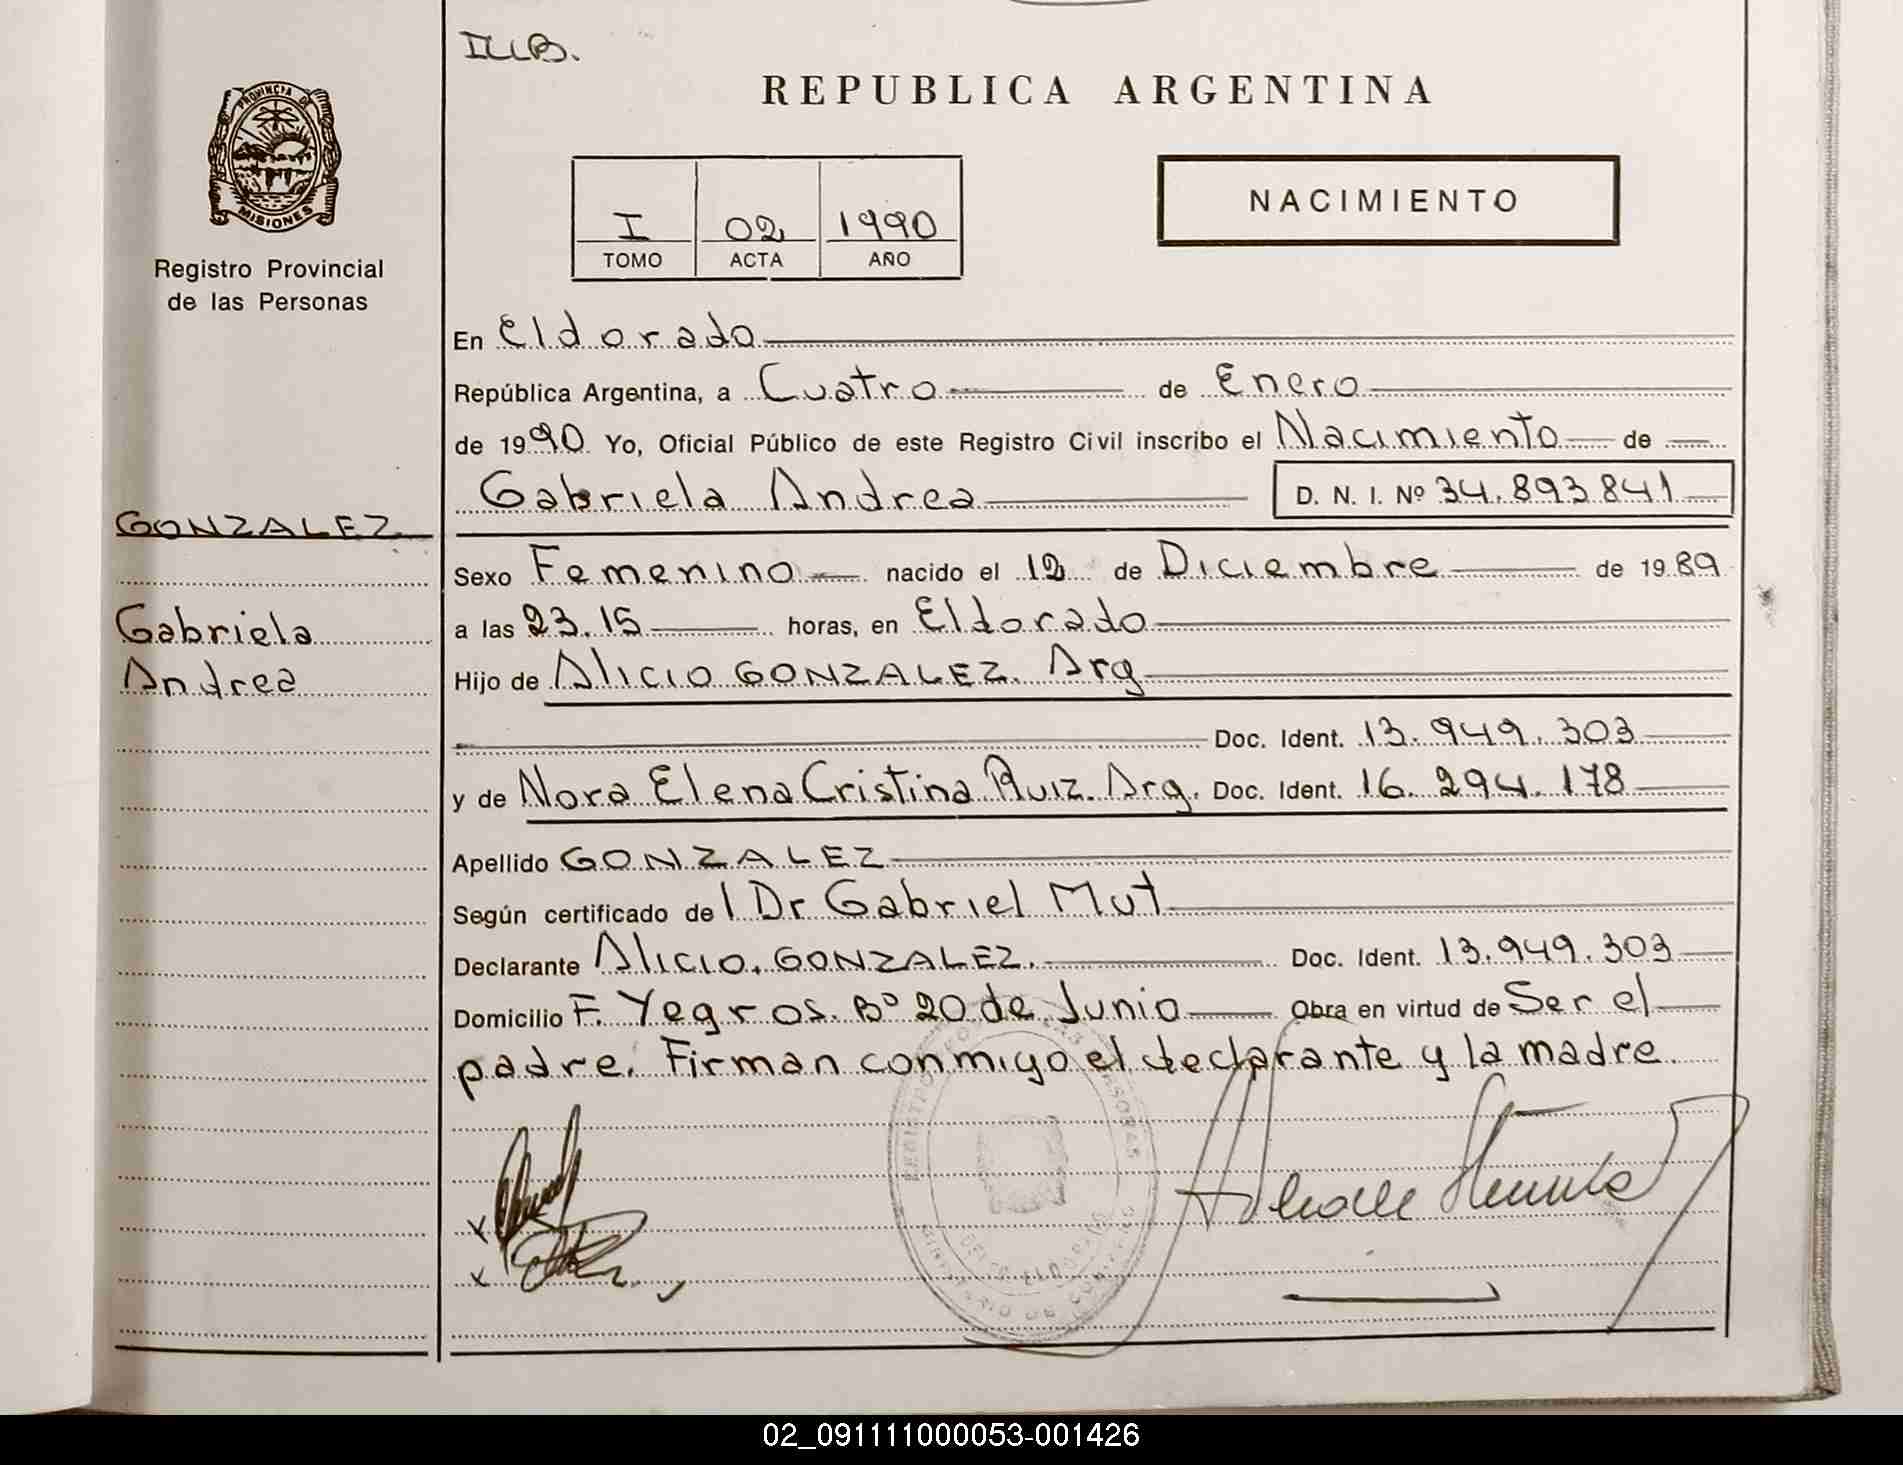 PROVINCIA DE
MISIONES
Registro Provincial
de las Personas
GONZALEZ
Gabriela
Andrea
REPUBLICA ARGENTINA
I 02 1990
TOMO ACTA AÑO
NACIMIENTO
En Eldorado
República Argentina, a Cuatro de Enero
de 1990 Yo, Oficial Público de este Registro Civil inscribo el Nacimiento de
Gabriela Andrea D. N. I. Nº 34.893841
Sexo Femenino nacido el 12 de Diciembre de 1989
a las 23.15 horas, en Eldorado
Hijo de Alicio GONZALEZ. Arg
Doc. Ident. 13.949.303
y de Nora Elena Cristina Ruiz. Arg. Doc. Ident. 16.294.178
Apellido GONZALEZ
Según certificado del Dr Gabriel Mut
Declarante Alicio. GONZALEZ. Doc. Ident. 13.949.303
Domicilio F. Yegros. Bº 20 de Junio Obra en virtud de Ser el
padre. Firman conmigo el declarante y la madre.
x
x
02_091111000053-001426